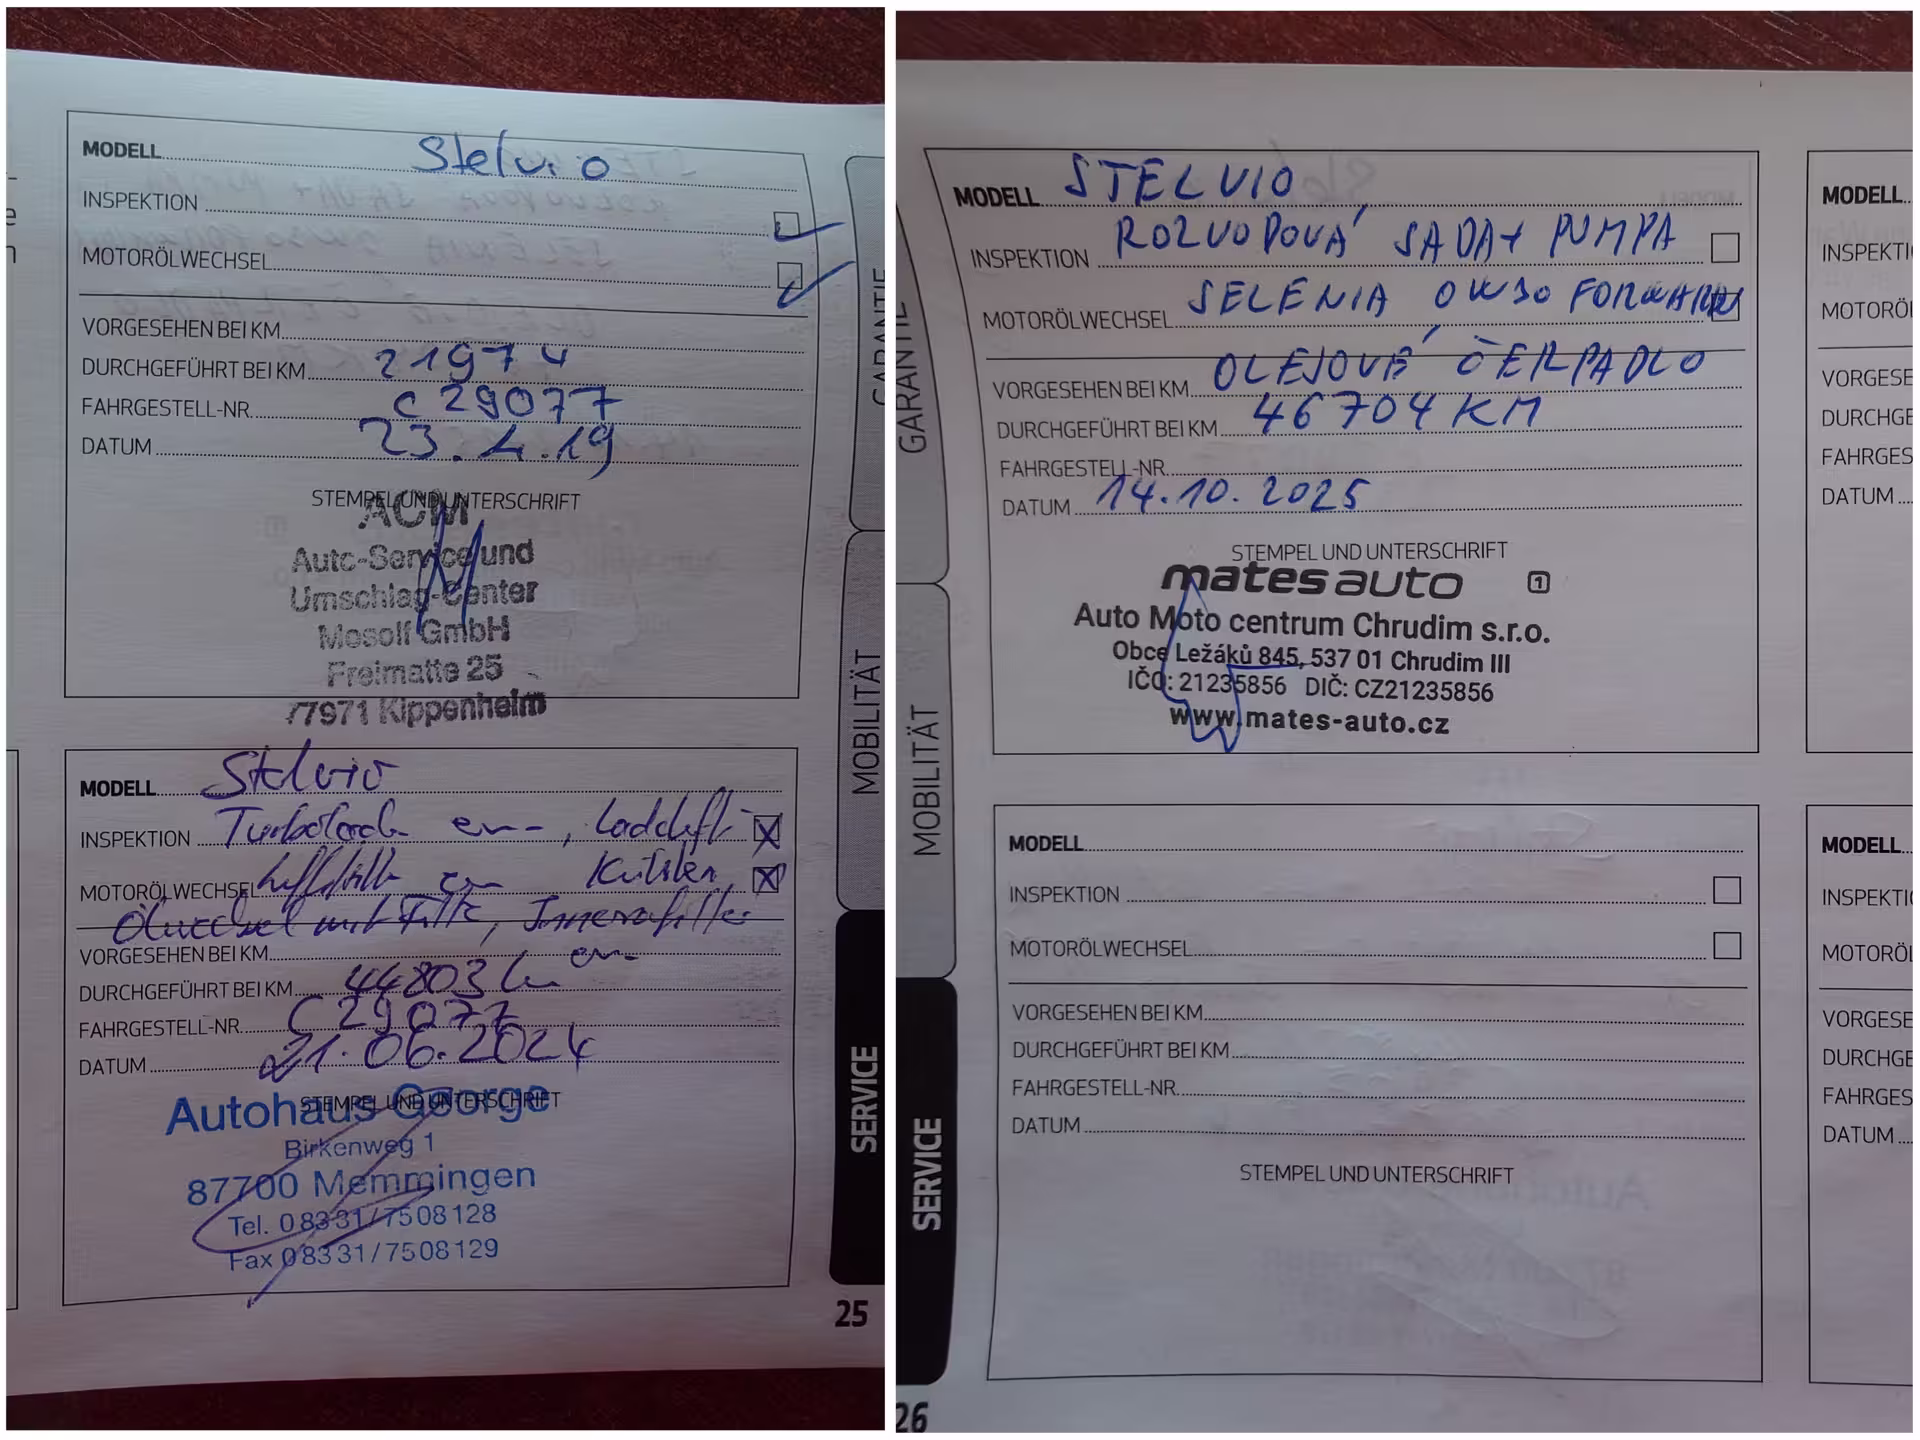 MODELL Stelvio
INSPEKTION
MOTORÖLWECHSEL
VORGESEHEN BEI KM
DURCHGEFÜHRT BEI KM 21974
FAHRGESTELL-NR. C29077
DATUM 23.4.19
STEMPEL UND UNTERSCHRIFT
ACM
Auto-Service und
Umschlag-Center
Mosolf GmbH
Freimatte 25
77971 Kippenheim
MODELL Stelvio
INSPEKTION
MOTORÖLWECHSEL
Ölwechsel mit
VORGESEHEN BEI KM
DURCHGEFÜHRT BEI KM 44803 km
FAHRGESTELL-NR. C29077
DATUM 21.06.2024
STEMPEL UND UNTERSCHRIFT
Autohaus George
Birkenweg 1
87700 Memmingen
Tel. 08331/7508128
Fax 08331/7508129
GARANTIE
MOBILITÄT
SERVICE
25
MODELL STELVIO
INSPEKTION ROZVODOVÁ SADA+ PUMPA
MOTORÖLWECHSEL SELENIA 0W30 FORWARD
VORGESEHEN BEI KM OLEJOVÉ ČERPADLO
DURCHGEFÜHRT BEI KM 46704 KM
FAHRGESTELL-NR.
DATUM 14.10.2025
STEMPEL UND UNTERSCHRIFT
mates auto 1
Auto Moto centrum Chrudim s.r.o.
Obce Ležáků 845, 537 01 Chrudim III
IČO: 21235856 DIČ: CZ21235856
www.mates-auto.cz
MODELL
INSPEKTION
MOTORÖLWECHSEL
VORGESEHEN BEI KM
DURCHGEFÜHRT BEI KM
FAHRGESTELL-NR.
DATUM
STEMPEL UND UNTERSCHRIFT
GARANTIE
MOBILITÄT
SERVICE
26
MODELL
INSPEKTI
MOTORÖ
VORGESE
DURCHGE
FAHRGES
DATUM
MODELL
INSPEKTI
MOTORÖL
VORGESE
DURCHGE
FAHRGES
DATUM